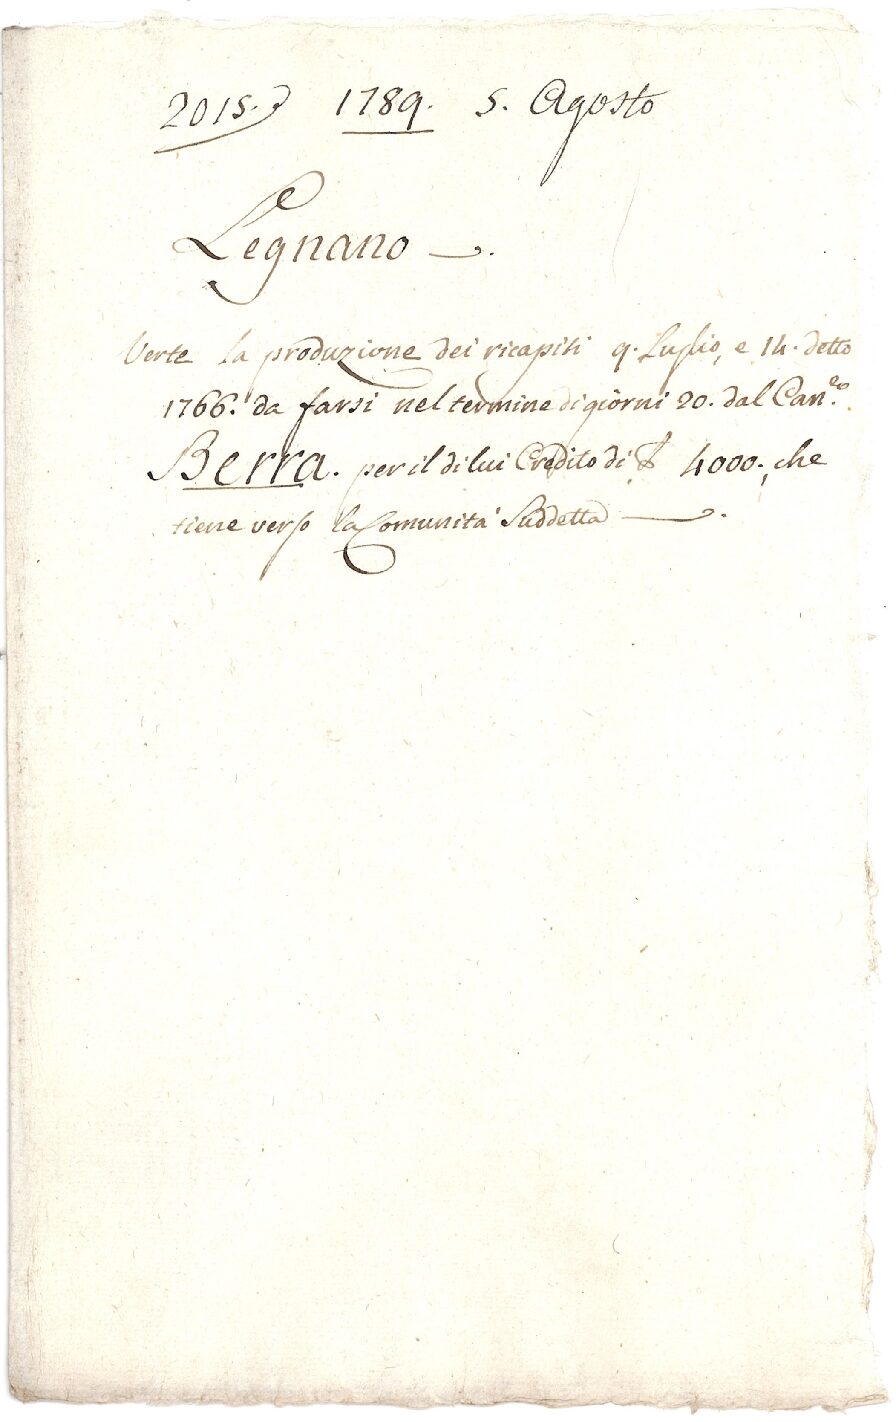 2015. 1789. 5. Agosto
Legnano
Verte la produzione dei ricapiti 9. Luglio, e 14. detto
1766. da farsi nel termine di giorni 20. dal Can.co
Berra. per il di lui Credito di £ 4000., che
tiene verso la Comunità Suddetta